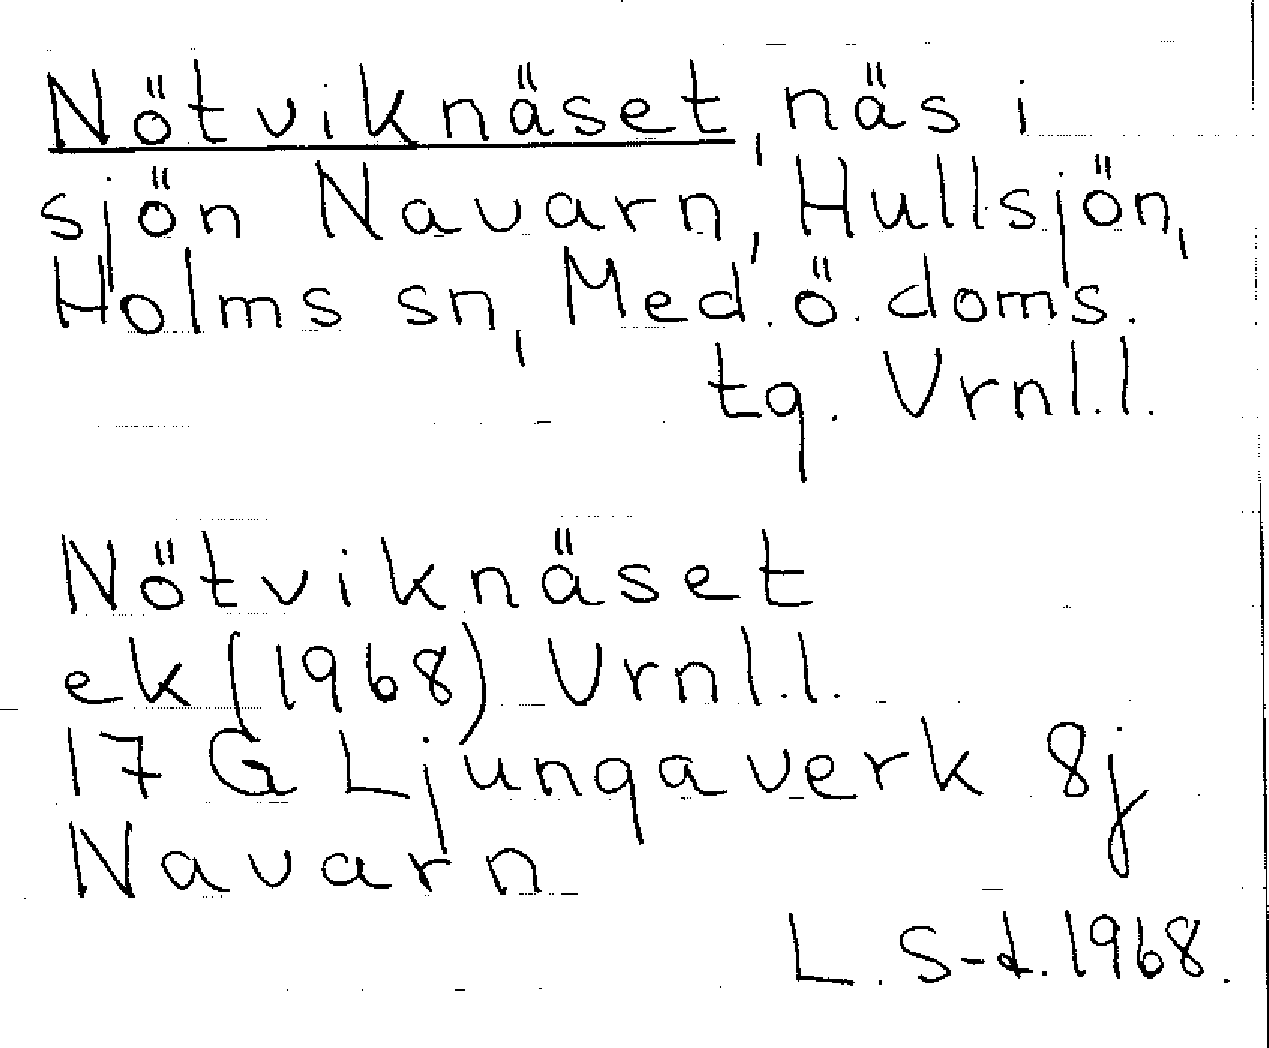 Nötviknäset, näs i
sjön Navarn, Hullsjön,
Holms sn, Med. ö. doms.
tg. Vrnl.l.
Nötviknäset
ek (1968) Vrnl.l.
17 G Ljungaverk 8j
Navarn
L. S-d. 1968.